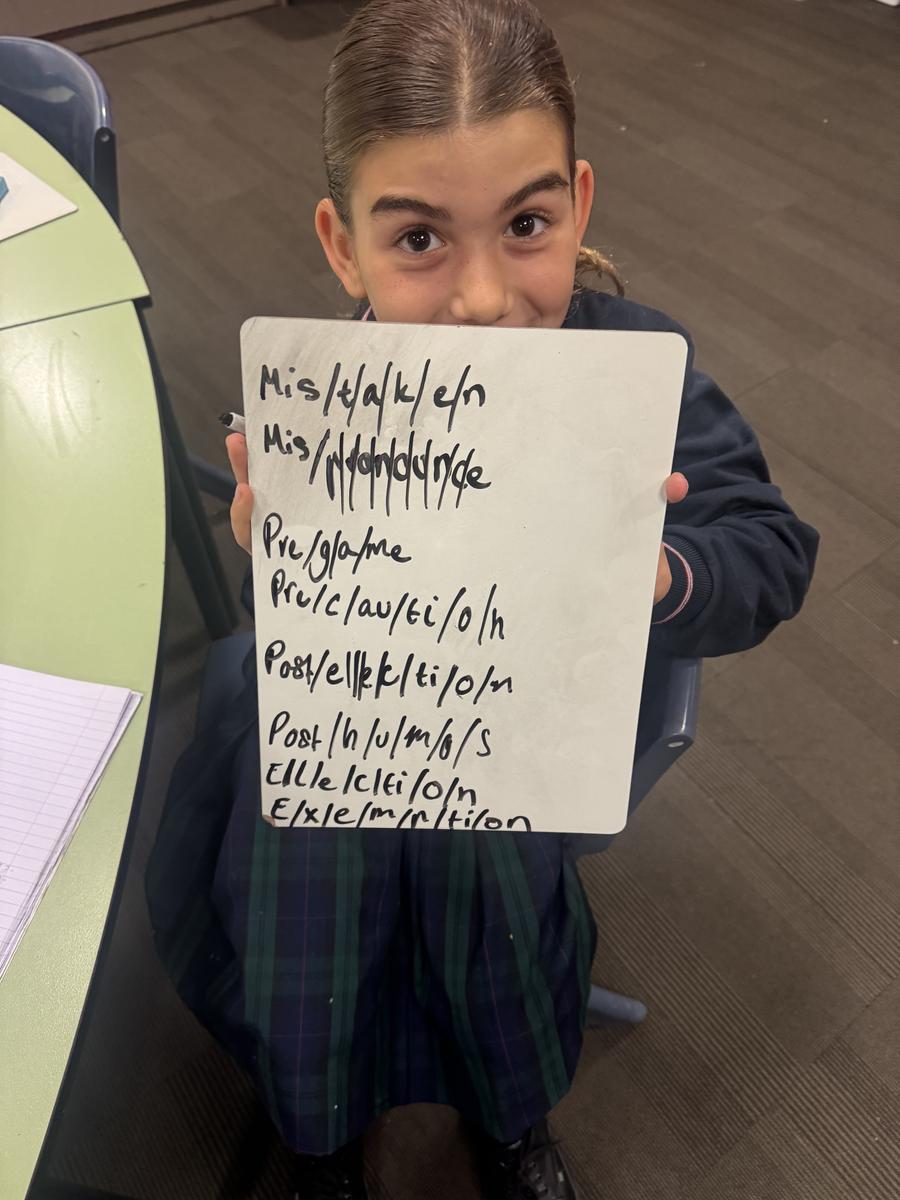 Mis/t/a/k/e/n
Mis/
Pre/g/a/me
Pre/c/au/ti/o/n
Post/el/e/c/ti/o/n
Post/h/u/m/o/s
E/l/e/c/ti/o/n
E/x/e/m/p/ti/on